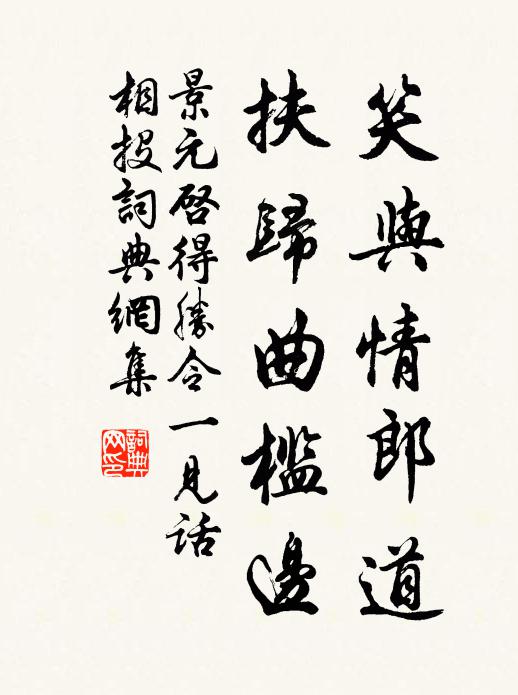 笑與情郎道
扶歸曲檻邊
景元啓得勝令一見話
相投詞典網集
詞典
网印